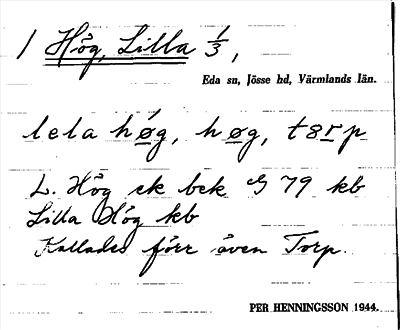 1 Hög, Lilla 1/3,
Eda sn, Jösse hd, Värmlands län.
lela hǿg, høg, t8rp
L. Hög ek bck G 79 kb
Lilla Hög kb
Kallades förr även Torp.
PER HENNINGSSON 1944.